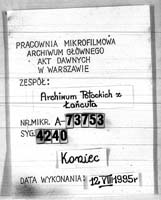 PRACOWNIA MIKROFILMOWA
ARCHIWUM GŁÓWNEGO
AKT DAWNYCH
W WARSZAWIE
ZESPÓŁ:
Archiwum Potockich z
Łańcuta
NR.MIKR. A-73753
SYG. 4240
Koniec
DATA WYKONANIA: 12.VII 1995r